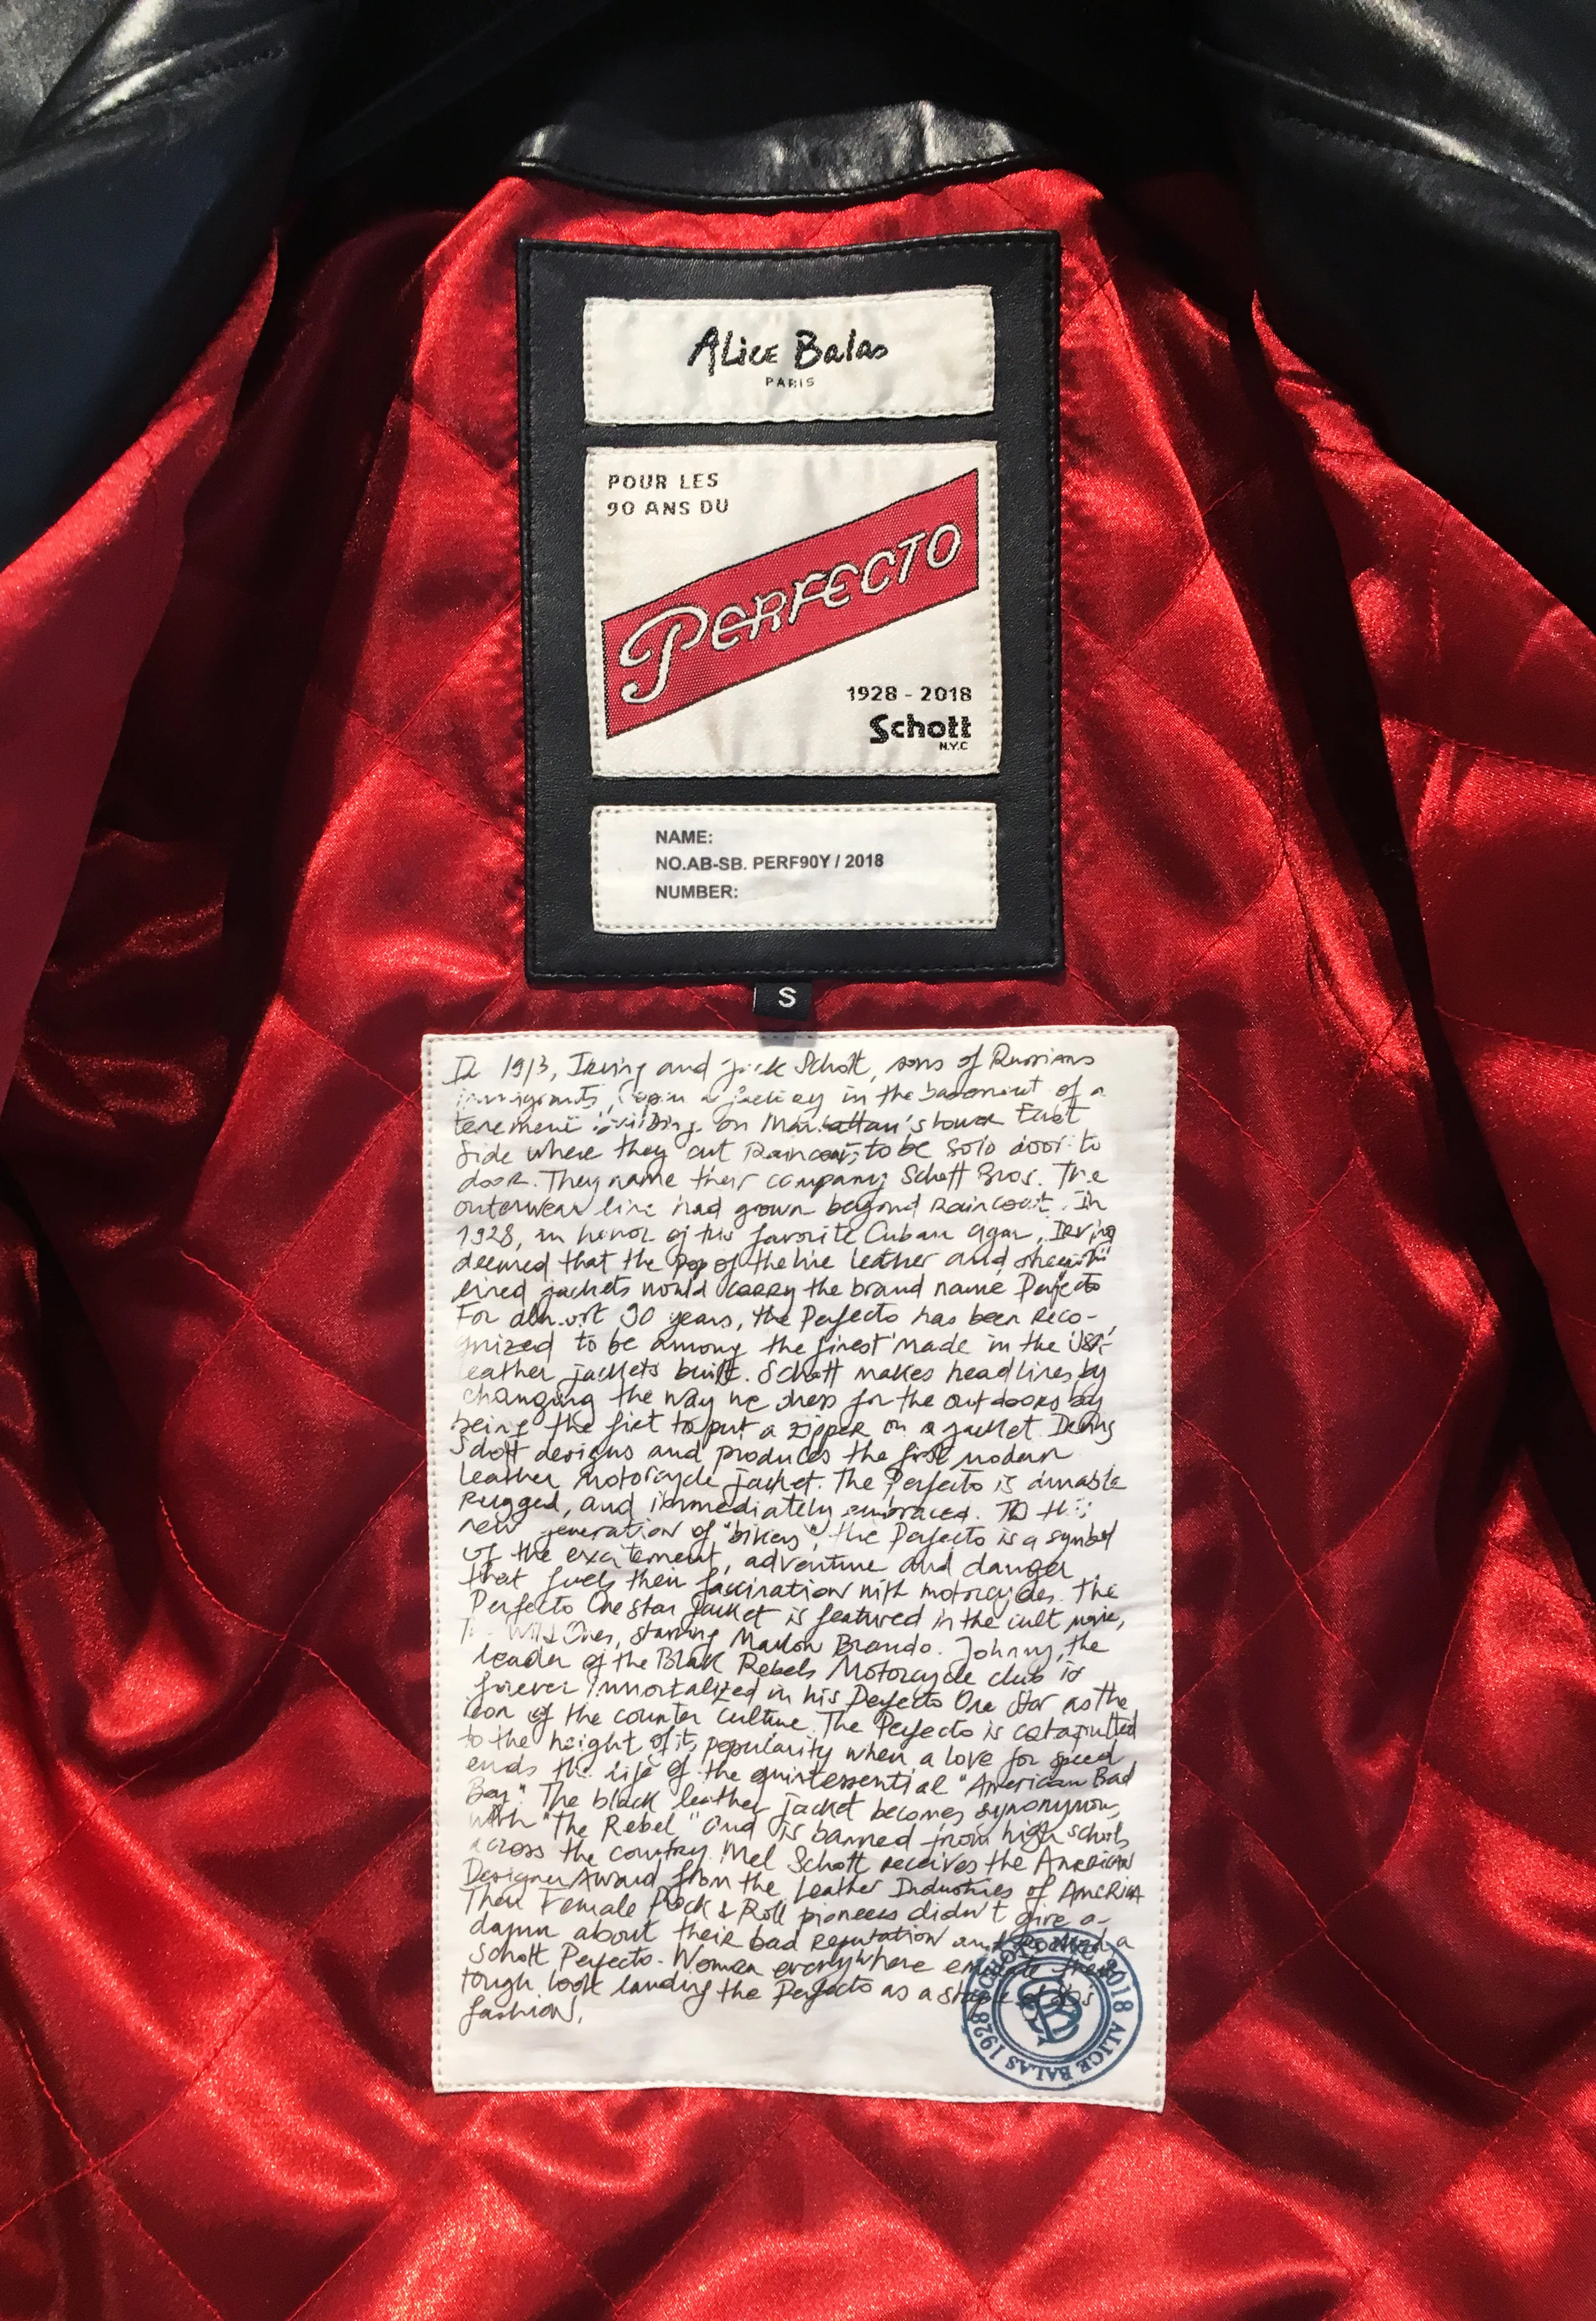 Alice Balas
PARIS
POUR LES
90 ANS DU
PERFECTO
1928 - 2018
Schott
N.Y.C
NAME:
NO.AB-SB. PERF90Y / 2018
NUMBER:
S
In 1913, Irving and Jack Schott, sons of Russians
immigrants, open a factory in the basement of a
tenement building on Manhattan's lower East
Side where they cut Raincoats to be sold door to
door. They name their company Schott Bros. The
outerwear line had grown beyond Raincoat. In
1928, in honor of his favorite Cuban cigar, Irving
deemed that the top of the line leather and
lined jackets would carry the brand name Perfecto
For almost 90 years, the Perfecto has been reco-
gnized to be among the finest made in the USA
leather jackets built. Schott makes headlines by
changing the way we dress for the outdoors by
being the first to put a zipper on a jacket. Irving
Schott designs and produces the first modern
leather motorcycle jacket. The Perfecto is durable
Rugged, and immediately embraced. To this
new generation of "bikers", the Perfecto is a symbol
of the excitement, adventure and danger
that fuels their fascination with motorcycles. The
Perfecto One Star Jacket is featured in the cult movie,
Wild Ones, starring Marlon Brando. Johnny, the
leader of the Black Rebels Motorcycle club is
forever immortalized in his Perfecto One Star as the
icon of the counter culture. The Perfecto is catapulted
to the height of its popularity when a love for speed
ends the life of the quintessential "American Bad
Boy". The black leather jacket becomes synonymous
with "The Rebel" and is banned from high schools
across the country. Mel Schott receives the American
Designer Award from the Leather Industries of America
Then Female Rock & Roll pioneers didn't give a
damn about their bad reputation and rocked a
Schott Perfecto. Women everywhere emulate their
tough look landing the Perfecto as a staple of 80's
fashion.
2018 ALICE BALAS 1928